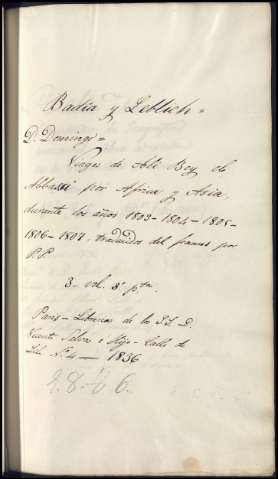 Badia y Leblich =
D. Domingo =
Viages de Ali Bey el
Abbassi por Africa y Asia,
durante los años 1803 - 1804 - 1805 -
1806 - 1807, traducidos del frances por
P. P.
3 - vol. 8º pta.
Paris - Libreria de los S.S. D.
Vicente Salvá e Hijo - Calle de
Lille Nº 4 — 1836